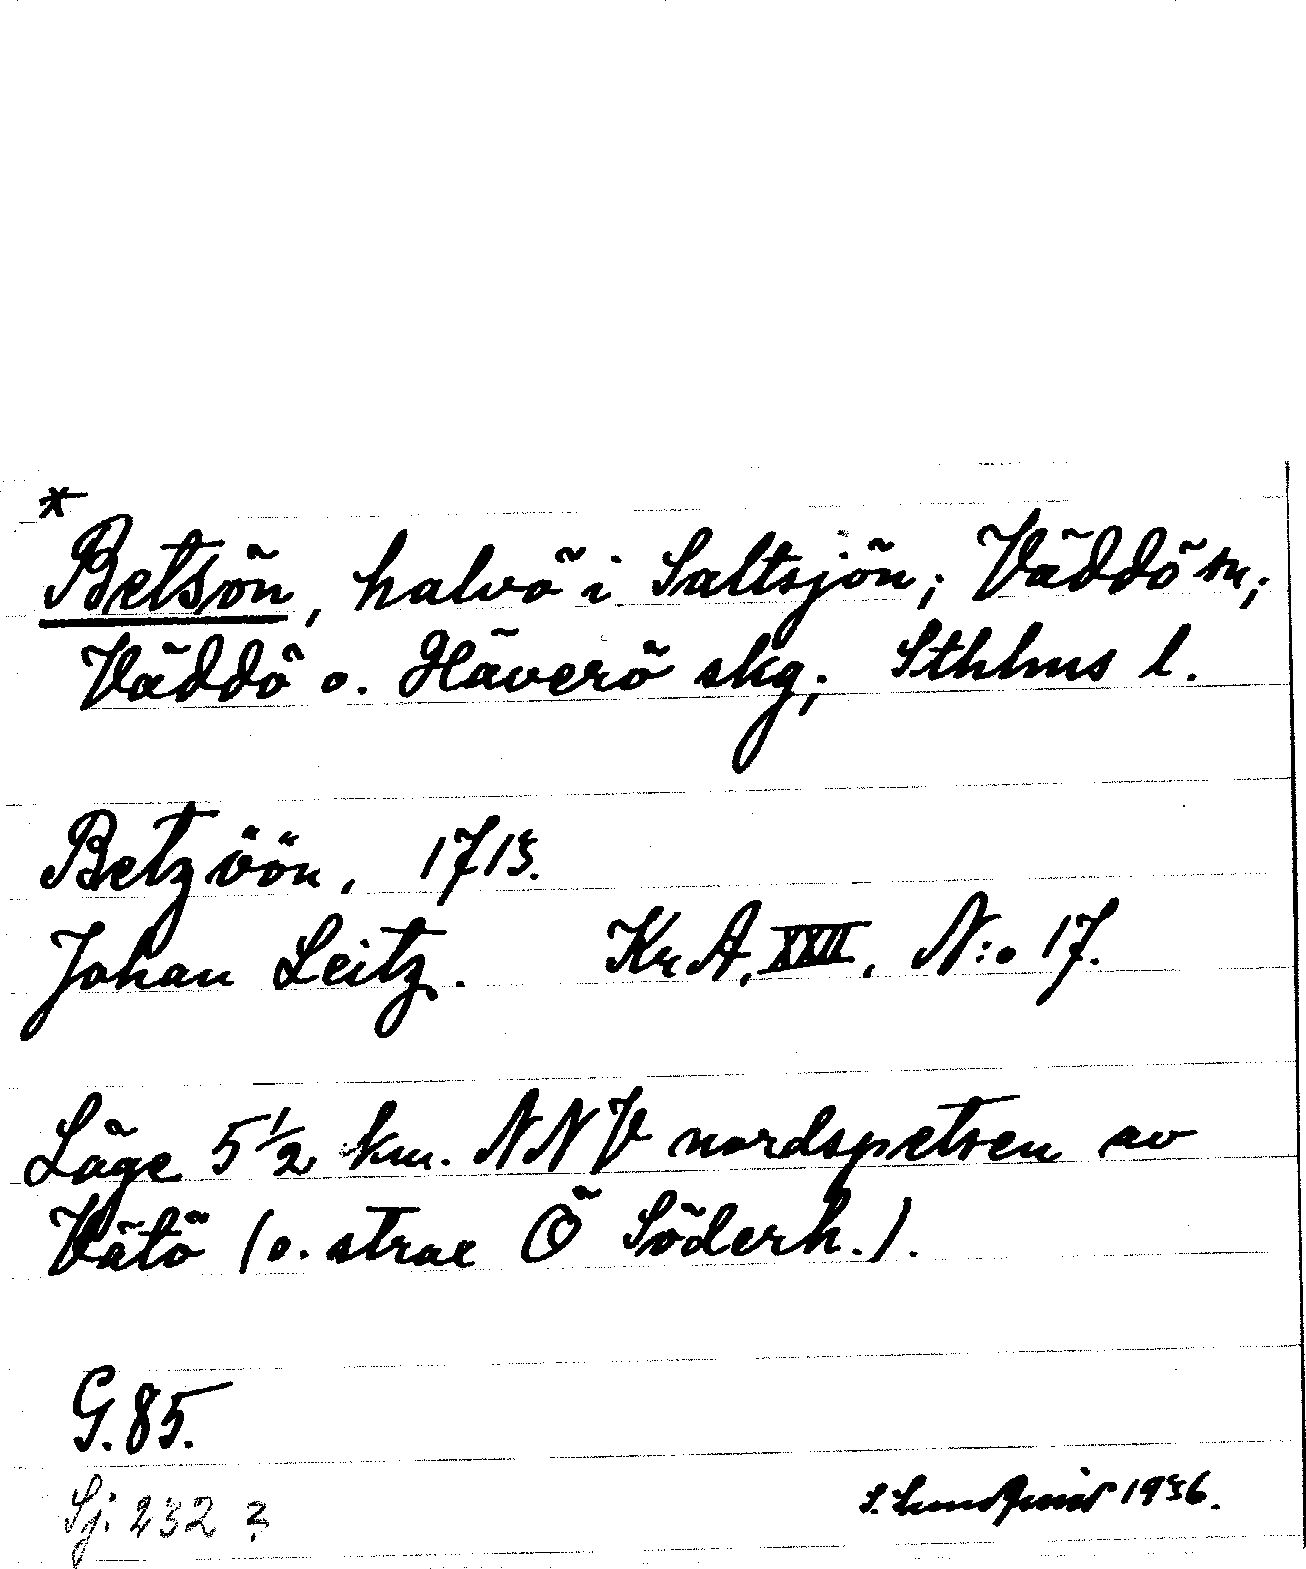 *
Betsön, halvö i Saltsjön; Väddö sn;
Väddö o. Häverö skg; Sthlms l.
Betzöön, 1715.
Johan Leitz. Kr A, XXII, N:o 17.
Läge 5 1/2 km. NNV nordspetsen av
Vätö (o. strax Ö Söderh.).
G. 85.
Sj. 232 ?
S. 1936.